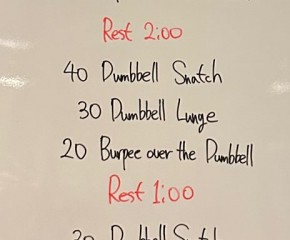 Rest 2:00
40 Dumbbell Snatch
30 Dumbbell Lunge
20 Burpee over the Dumbbell
Rest 1:00